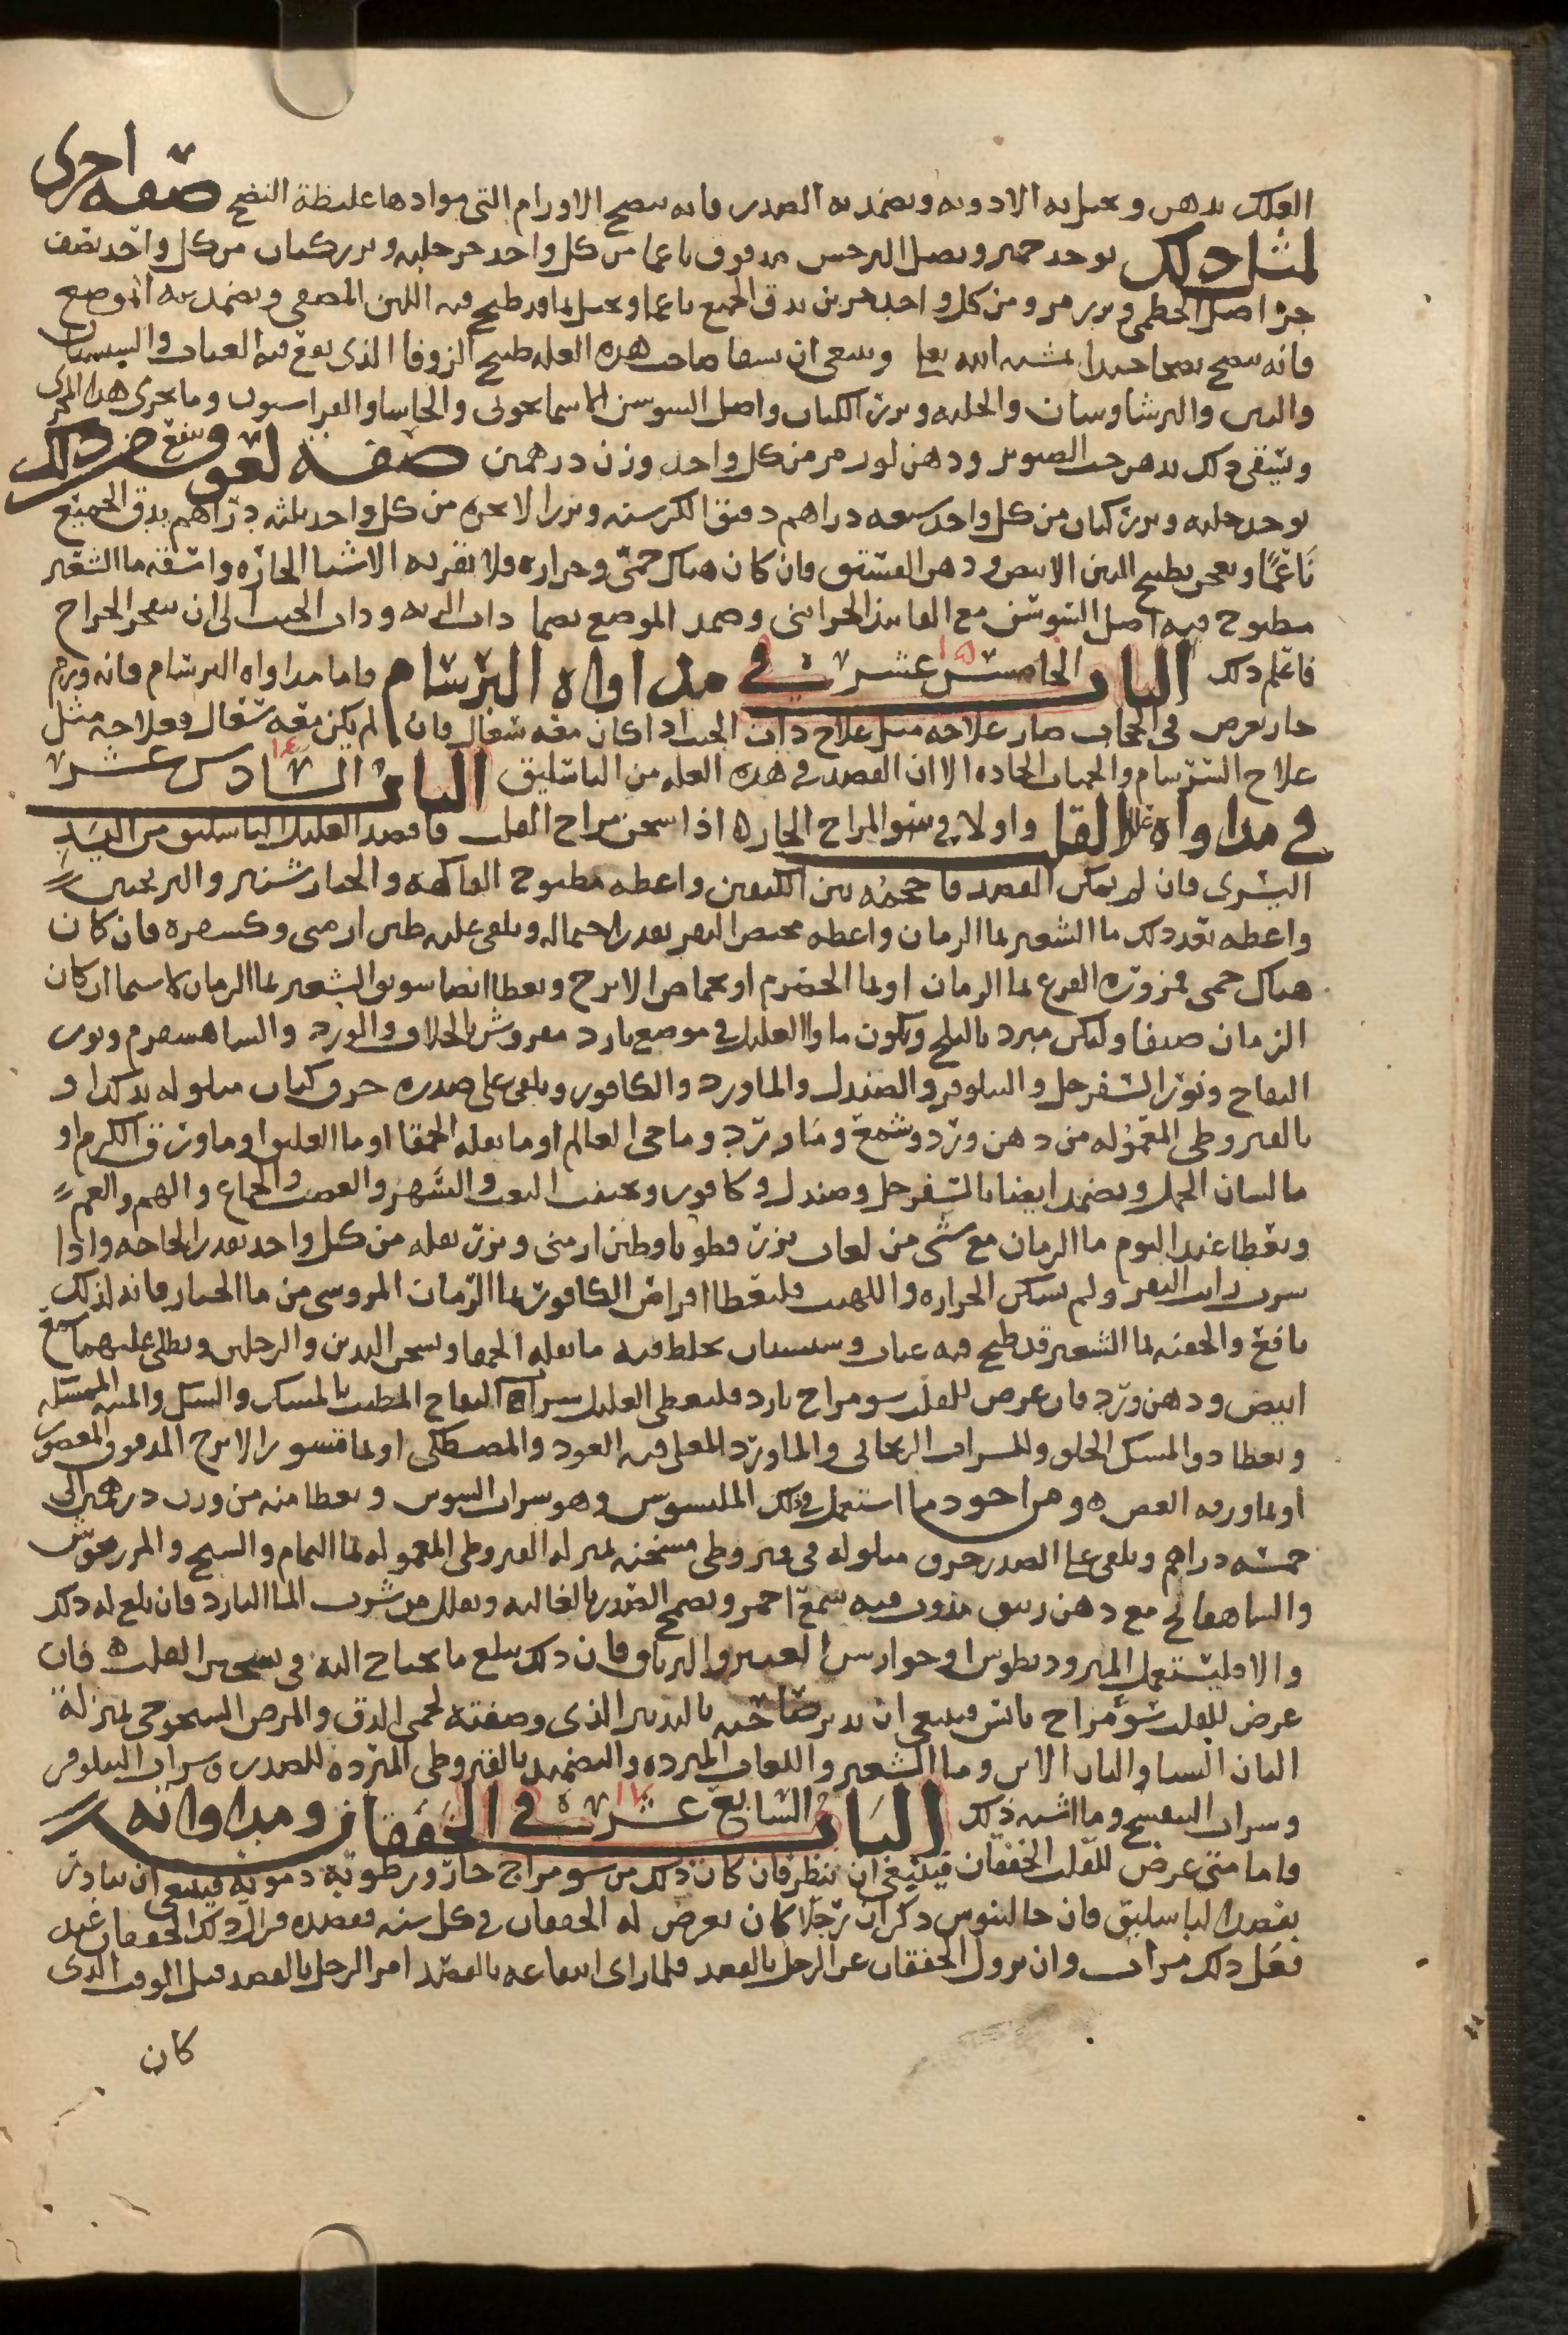 العلك بدهن ويحل به الادويه ويضمد به الصدر فانه ينضج الاورام التى موادها غليظة النضج صفه اخرى
لمثل ذلك يوخد حمير وبصل النرجس مدقوق ناعما من كل واحد جز حلبه وبزر كتان من كل واحد نصف
جز اصل الخطمى وبزر مرو من كل واحد جزين يدق الجميع ناعما ويحل بما قد طبخ فيه التين المصفى ويضمد به الموضع
فانه ينضج نضجا جيدا بمشيه الله تعا وينبغى ان يسقا صاحب هذه العله طبيخ الزوفا الذى يقع فيه العناب والسبستان
والتين والبرشاوشان والحلبه وبزر الكتان واصل السوسن الاسمانجونى والحاشا والفراسيون وما يجرى هذا المجرى
ويسقى ذلك بدهن حب الصنوبر ودهن لوز مر من كل واحد وزن درهمين صفة لعوق ينفع من ذلك
يوخد حلبه وبزر كتان من كل واحد سبعه دراهم دقيق الكرسنه وبزر الانجره من كل واحد ثلثه دراهم يدق الجميع
ناعمًا ويعجن بطبيخ التين الابيض ودهن الفستق فان كان هناك حمّى وحراره فلا تقربه الاشيا الحارّه واسقه ما الشعير
مطبوخ فيه اصل السوسن مع الفانيذ الخزاينى وضمد الموضع بضما ذات الريه وذات الجنب الى ان ينفجر الخراج
فاعلم ذلك الباب الخامس عشر ١٥ في مداواه البرسام فاما مداواه البرسام فانه ورم
حار يعرض فى الحجاب صار علاجه مثل علاج ذات الجنب اذا كان معه سعال وان لم يكن معه سعال فعلاجه مثل
علاج السرسام والحميات الحاده الا ان الفصد فى هذه العله من الباسليق الباب السادس عشر ١٦
في مداواه علل القلب واولا في سو المزاج الحاره اذا سخن مزاج القلب فافصد العليل الباسليق من اليد
اليسرى فان لم يمكن الفصد فاحجمه بين الكتفين واعطه مطبوخ الفاكهه والخيار شنبر والترنجبين
واعطه بعد ذلك ما الشعير بما الرمان واعطه مخيض البقر بقدر احتماله ويلقى عليه طين ارمنى وكسفره فان كان
هناك حمى فمزوّره القرع بما الرمان او بما الحصرم او بحماض الاترج ويعطا ايضا سويق الشعير بما الرمان لا سيما ان كان
الزمان صيفا وليكن مبرد بالثلج ويكون ماوا العليل في موضع بارد مفروش بالخلاف والورد والشاهسفرم ونور
التفاح ونور السفرجل والنيلوفر والصندل والماورد والكافور ويلقى على صدره خرق كتان مبلوله بذلك او
بالقيروطى المعموله من دهن ورد وشمع وماورد وما حى العالم او ما بقله الحمقا او ما العليق او ما ورق الكرم او
ما لسان الحمل ويضمد ايضا بالسفرجل وصندل وكافور ويجنب التعب والسهر والغضب والجماع والهم والغم
ويعطا عند النوم ما الرمان مع شى من لعاب بزر قطونا وطين ارمنى وبزر بقله من كل واحد بقدر الحاجه واذا
شرب رايب البقر ولم يسكن الحراره واللهيب فليعطا اقراص الكافور بما الرمان المروسى من ما الخيار فانه لذلك
نافع والحقنه بما الشعير قد طبخ فيه عناب وسبستان يخلط فيه ما بقله الحمقا ويسخن اليدين والرجلين ويطلى عليهما شمع
ابيض ودهن ورد فان عرض للقلب سو مزاج بارد فليعطى العليل شراب التفاح المطيب بالمسك والسك والميبه الممسكه
ويعطا دوا المسك الحلو وللشراب الريحانى والماورد المغلى فيه العود والمصطكى او بما قشور الاترج المدقوق المعصور
او بما ورقه الغض ه ومن اجود ما استعمل في ذلك الميسوسن وهو شراب السوسن ويعطا منه من وزن درهمين الى
خمسه دراهم ويلقى على الصدر خرق مبلوله فى قيروطى مسخنه بمنزله القيروطى المعموله بما النمام والشيح والمرزنجوش
والشاهفانج مع دهن زنبق مذوب فيه شمع احمر ويضمخ الصدر بالغاليه ويقلل من شرب الما البارد فان بلغ له ذلك
والا فليستعمل المثروديطوس او جوارشن العنبر والترياق فان ذلك يبلغ ما يحتاج اليه في تسخين القلب ه فان
عرض للقلب سو مزاج يابس فينبغى ان يدبر صاحبه بالتدبير الذى وصفته لحمى الدق والمرض الشيخوخى بمنزلة
البان النسا والبان الاتن وما الشعير واللعاب المبرده والتضميد بالقيروطى المبرده للصدر وشراب النيلوفر
وشراب البنفسج وما اشبه ذلك الباب السابع عشر ١٧ في الخفقان ومداواته
واما متى عرض للقلب الخفقان فينبغى ان ينظر فان كان ذلك من سو مزاج حار ورطوبه دمويه فينبغى ان يبادر
بفصد الباسليق فان جالينوس ذكر ان رجلا كان يعرض له الخفقان في كل سنه فيفصده فزال ذلك الخفقان عنه
فعل ذلك مرات وان يزول الخفقان عن الرجل بالفصد فلما راى انتفاعه بالفصد امر الرجل بالفصد قبل الوقت الذى
كان